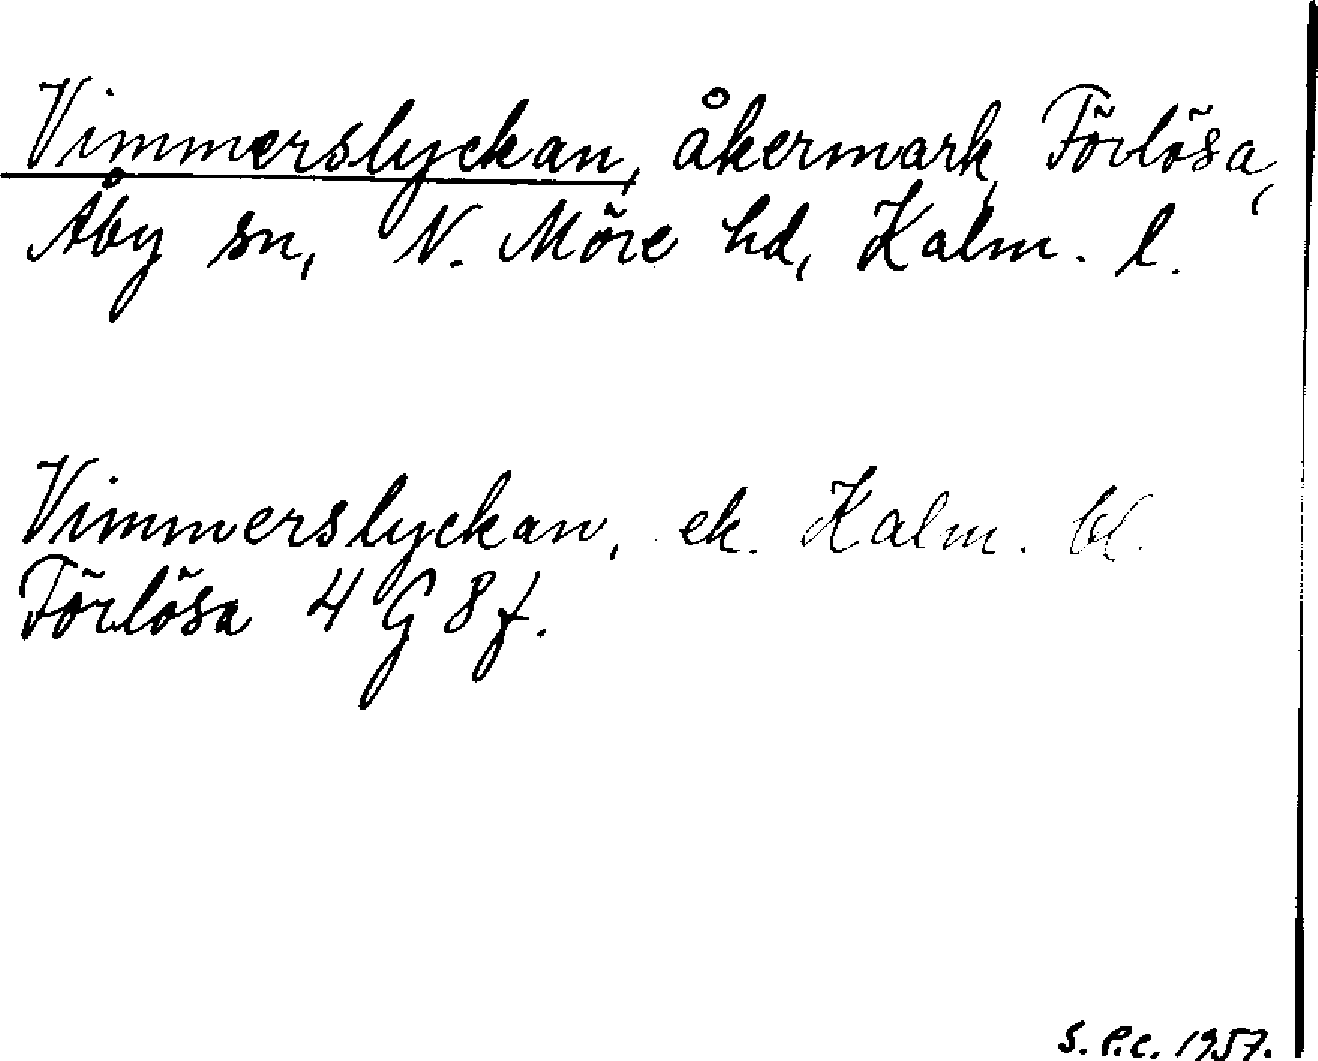 Vimmerslyckan, åkermark, Förlösa,
Åby sn, N. Möre hd, Kalm. l.
Vimmerslyckan, ek. Kalm. bl.
Förlösa 4 G 8 f.
S. P.C. 1957.